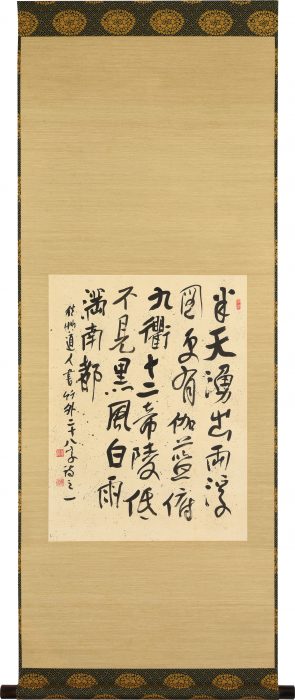 半天湧出兩浮
圖更有伽藍俯
九衢十二帝陵低
不見黑風白雨
滿南都
秋艸道人書竹外二十八字詩之一